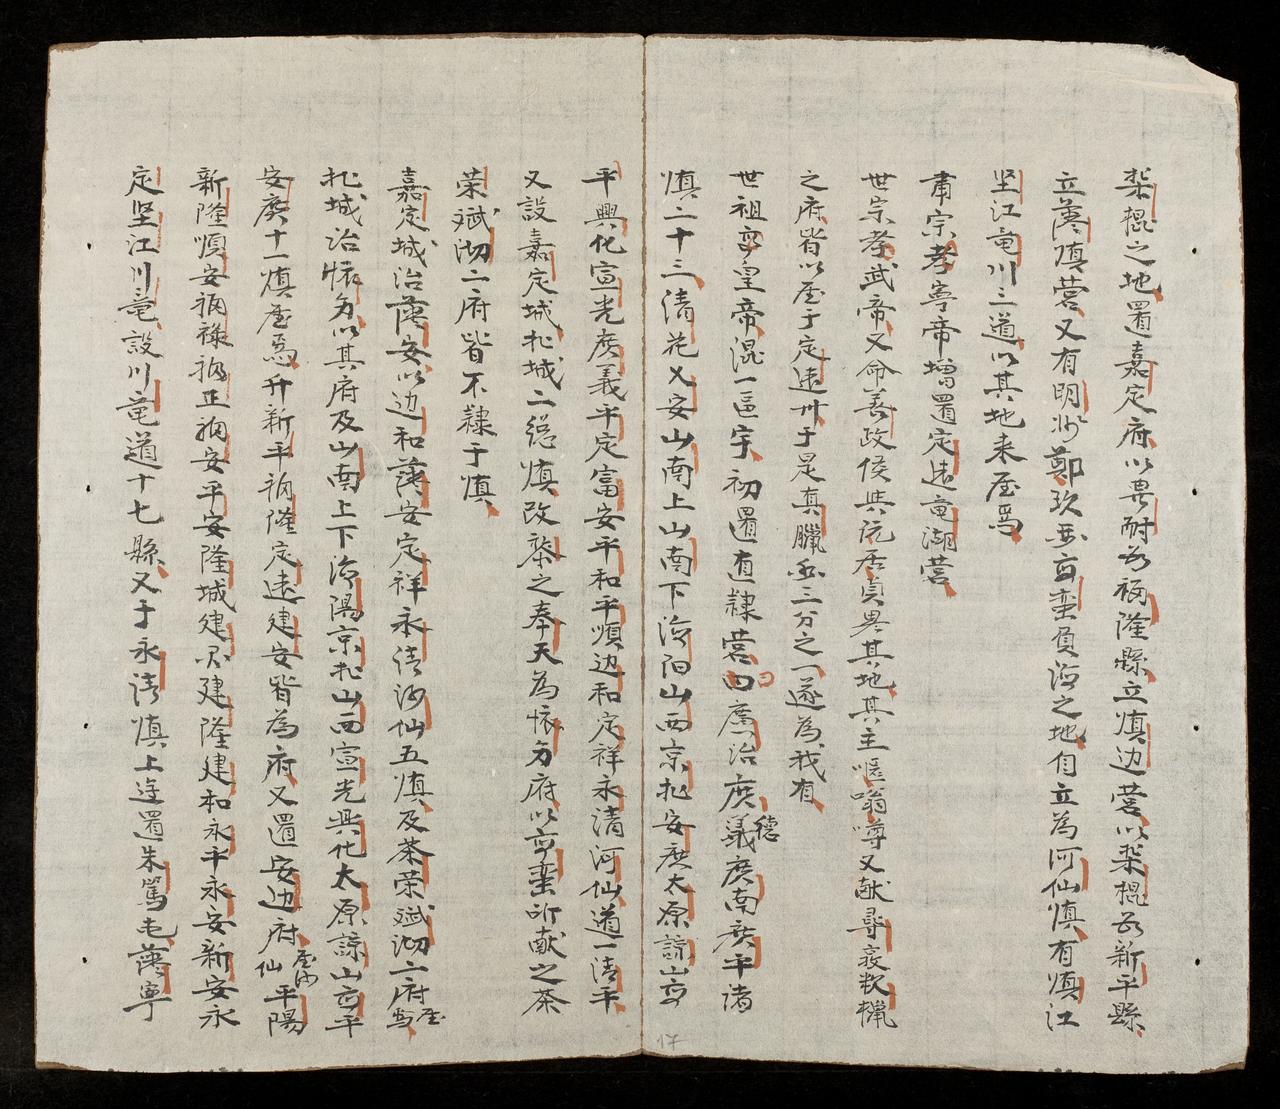 柴棍之地置嘉定府以畀耐為福隆縣立鎮边营以柴棍為新平縣
立藩鎮营又有明鄉鄭玖並高蛮負海之地自立為河仙鎮有鎮江
坚江竜川三道以其地来属焉
肅宗孝寧帝增置定遠竜湖营
世宗孝武帝又命善政侯與阮居貞畀其地其主嗢嗡噂又献尋裒欺臘
之府皆以属于定遠卅于是真臘並三分之一遂為我有
世祖高皇帝混一區宇初置直隸营四廣治廣德廣南廣平诸
鎮二十三清花乂安山南上山南下海阳山西京北安廣太原諒山高
平興化宣光廣義平定富安平和平順边和定祥永清河仙道一清平
又設嘉定城北城二總鎮改柴之奉天為懷方府以高蛮所献之茶
荣斌沏二府皆不隸于鎮
嘉定城治藩安以边和藩安定祥永清河仙五鎮及茶荣斌沏二府属焉
北城治懷方以其府及山南上下海陽京北山西宣光興化太原諒山高平
安廣十一鎮属焉升新平福隆定遠建安皆為府又置安边府属河仙平陽
新隆順安福祿福正福安平安隆城建不建隆建和永平永安新安永
定坚江川竜設川竜道十七縣又于永清鎮上连置朱篤屯藩寧
17